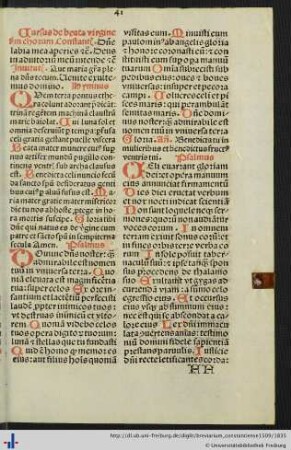 41
Cursus de beata virgine
s'm chorum Constant'. Deus
labia mea aperies. Deus
in adiutoriū meū intende
Que maria
plena dn̄s tecum. Venite exulte-
mus domino. Hymnus
Quem terra pontus ethe-
ra colunt adorant p̄dicāt
trinā regētem machinā claustrū
maria baiulat. Cui luna sol et
omnia deseruiūt p tempa pfusa
celi gratia gestant puelle viscera
Beata mater munere cui' sup-
nus artifex mundū pugillo con-
tinens ventr' sub archa clausus ē
Benedicta celi nuncio fecūda
sancto spū desideratus genti-
bus cui' p aluū fusus est. Ma-
ria mater gratie mater misericor-
die tu nos ab hoste protege in ho-
ra mortis suscipe. Gloria tibi
domine qui natus es de v̄gine cum
patre et sācto spū in sempiterna
secula Amen. Psalmus
Domine dn̄s noster: q̄
admirabile est nomen
tuū in vniuersa terra. Quo-
niā eleuata est magnificen-
tia tua: super celos. Ex ore in-
fantium et lactētiū perfecisti
laudē ppter inimicos tuos: vt
destruas inimicū et vlto-
rem. Quoniā videbo celos
tuos opera digitorū tuorum:
lunā et stellas que tu fundasti
Quid ē homo q memor es
eius: aut filius hois quoniā
visitas eum. Minuisti eum
paulominus ab angelis: gloria et
honore coronasti eū: et con-
stituisti eum sup opera manuū
tuarum. Omnia subiecisti sub
pedibus eius: oues et boues
vniuersas insuper et pecora
campi. Volucres celi et pi-
sces maris: qui perambulāt
semitas maris. Dn̄e domi-
nus noster: q̄ admirabile est
nomen tuū in vniuersa terra
Gloria. An. Benedicta tu in
mulieribus et benedictus fruct'
ventris tui. Psalmus
Celi enarrant gloriam
dei: et opera manuum
eius annunciat firmamentū
Dies diei eructat verbum:
et nox nocti indicat scientiā
Non sunt loquele neq ser-
mones: quorū non audiātur
voces eorum. In omnem
terram exiuit sonus eorū: et
in fines orbis terre verba eo-
rum. In sole posuit taber-
naculū suū: et ipse tanq̄ spōsus
procedens de thalamo
suo. Exultauit vt gygas ad
currendā viam: a sūmo celo
egressio eius. Et occursus
eius vsq ad summum eius:
nec est qui se abscondat a ca-
lore eius. Lex dn̄i immacu-
lata conuertens animas: testimo-
niū domini fidele sapientiā
prestans paruulis. Iusticie
dn̄i recte letificantes corda:
HH
http://dl.ub.uni-freiburg.de/diglit/breviarium_constantiense1509/1835
© Universitätsbibliothek Freiburg